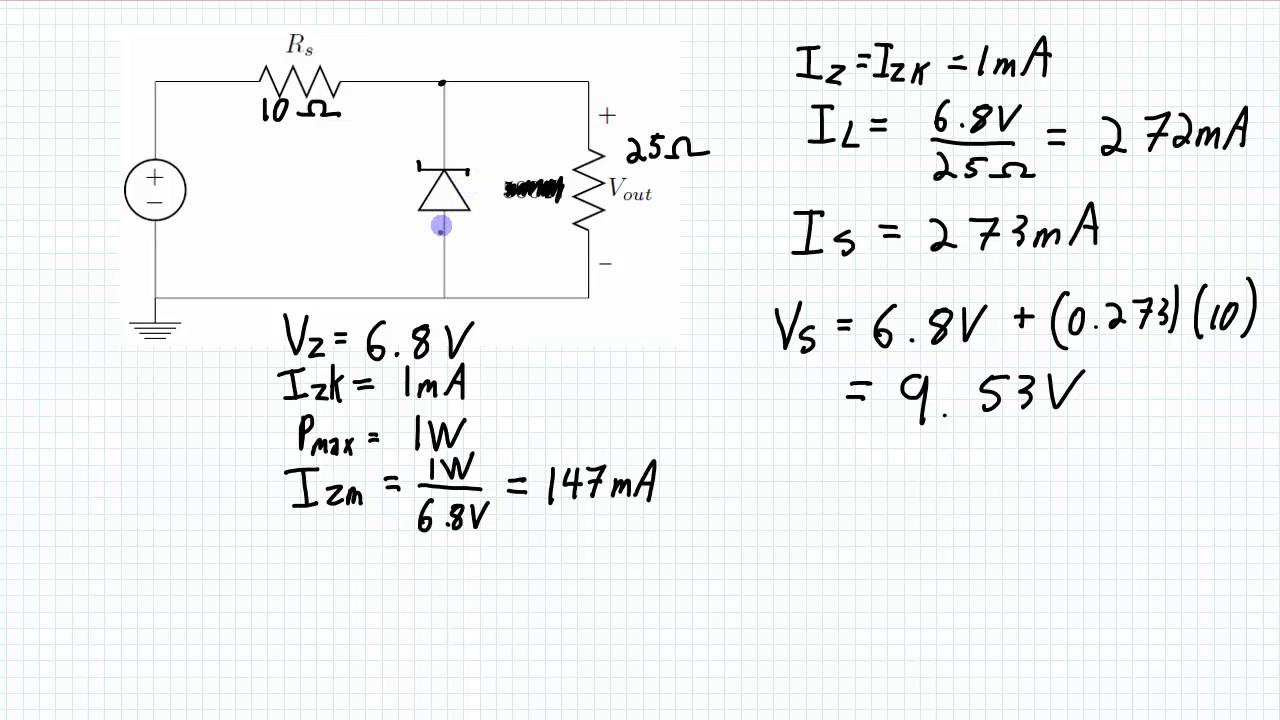 Rs
10 Ω
+
−
+
25Ω
Vout
−
Vz = 6.8V
Izk = 1mA
Pmax = 1W
Izm = 1W / 6.8V = 147mA
Iz = Izk = 1mA
IL = 6.8V / 25Ω = 272mA
Is = 273mA
Vs = 6.8V + (0.273)(10)
= 9.53V